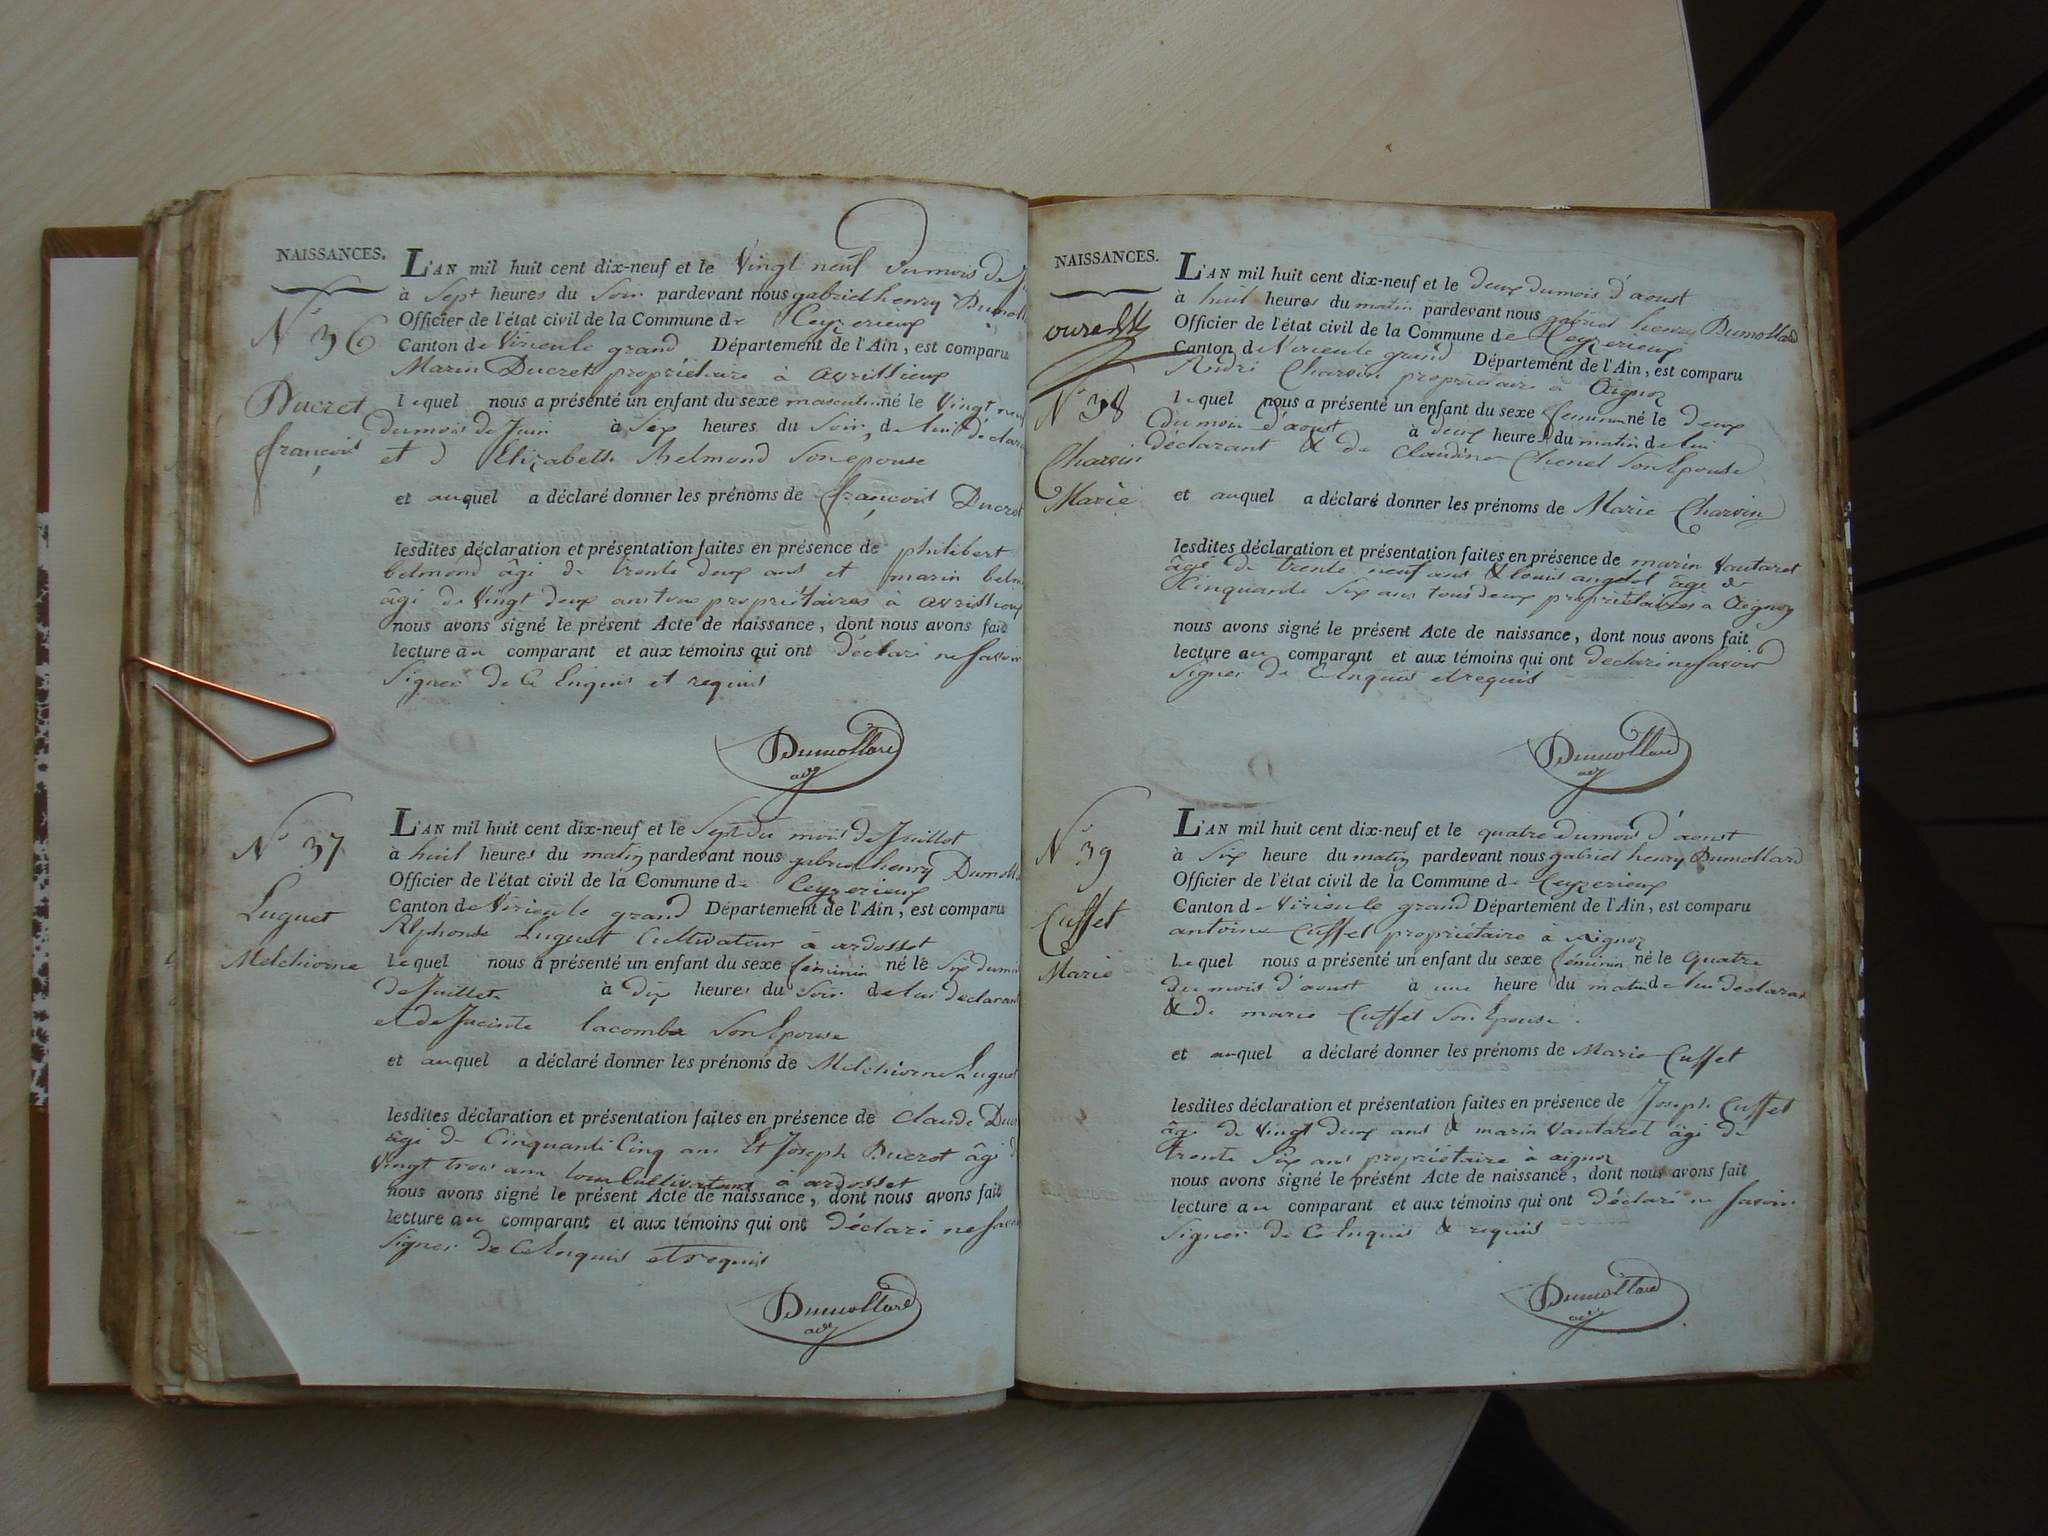 NAISSANCES.
N° 36
Ducret
françois
L'AN mil huit cent dix-neuf et le Vingt neuf du mois de
à Sept heures du Soir pardevant nous gabriel henry Dumoll
Officier de l'état civil de la Commune de Ceyzerieux
Canton de Virieu le grand Département de l'Ain, est comparu
Marin Ducret propriétaire à avrillieux
lequel nous a présenté un enfant du sexe masculin né le Vingt neuf
du mois de Juin à Six heures du Soir, de lui déclara
et d Elizabeth Belmond Son epouse
et auquel a déclaré donner les prénoms de françois Ducret
lesdites déclaration et présentation faites en présence de philibert
belmond âgé de trente deux ans et marin belm
âgé de Vingt deux ans tous propriétaires à avrillieux
nous avons signé le présent Acte de naissance, dont nous avons fait
lecture au comparant et aux témoins qui ont déclaré ne Savoir
Signer de Ce Enquis et requis
Dumollard
adj
N° 37
Luguet
Melchiorne
L'AN mil huit cent dix-neuf et le Sept du mois de Juillet
à huit heures du matin pardevant nous gabriel henry Dumolla
Officier de l'état civil de la Commune de Ceyzerieux
Canton de Virieu le grand Département de l'Ain, est comparu
Alphonse Luguet Cultivateur à ardosset
lequel nous a présenté un enfant du sexe féminin né le Six du moi
de Juillet à dix heures du Soir de lui declarant
et de Jacinte lacombe Son Epouse
et auquel a déclaré donner les prénoms de Melchiorne Luguet
lesdites déclaration et présentation faites en présence de Claude Duc
âgé de Cinquante Cinq ans Et Joseph Ducrot âgé d
Vingt trois ans tous Cultivateurs à ardosset
nous avons signé le présent Acte de naissance, dont nous avons fait
lecture au comparant et aux témoins qui ont déclaré ne Savoir
Signer de Ce Enquis et requis
Dumollard
adj
NAISSANCES.
N° 38
Charvin
Marie
L'AN mil huit cent dix-neuf et le deux du mois d'aoust
à huit heures du matin pardevant nous gabriel henry Dumollard
Officier de l'état civil de la Commune de Ceyzerieux
Canton de Virieu le grand Département de l'Ain, est comparu
André Charvin propriétaire à Aignoz
lequel nous a présenté un enfant du sexe feminin né le deux
du mois d'aoust à deux heures du matin de lui
déclarant & de Claudine Chenel Son Epouse
et auquel a déclaré donner les prénoms de Marie Charvin
lesdites déclaration et présentation faites en présence de marin Vautaret
âgé de trente neuf ans & louis angelot âgé de
Cinquante Six ans tous deux propriétaires à Aignoz
nous avons signé le présent Acte de naissance, dont nous avons fait
lecture au comparant et aux témoins qui ont declaré ne Savoir
Signer de Ce Enquis et requis
Dumollard
adj
N° 39
Cuffet
Marie
L'AN mil huit cent dix-neuf et le quatre du mois d'aoust
à Six heure du matin pardevant nous gabriel henry Dumollard
Officier de l'état civil de la Commune de Ceyzerieux
Canton de Virieu le grand Département de l'Ain, est comparu
antoine Cuffet propriétaire à aignoz
lequel nous a présenté un enfant du sexe féminin né le quatre
du mois d'aoust à une heure du matin de lui declaran
& de marie Cuffet Son Epouse.
et auquel a déclaré donner les prénoms de Marie Cuffet
lesdites déclaration et présentation faites en présence de Joseph Cuffet
âgé de Vingt deux ans & marin Vautaret âgé de
trente Six ans propriétaire à aignoz
nous avons signé le présent Acte de naissance, dont nous avons fait
lecture au comparant et aux témoins qui ont déclaré ne Savoir
Signer de Ce Enquis & requis
Dumollard
adj